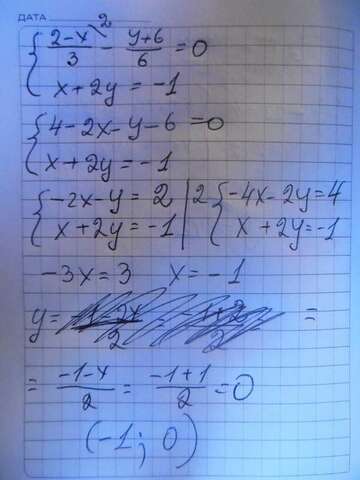 ДАТА
{ 2-x\2 / 3 - y+6 / 6 = 0
x+2y = -1
{ 4-2x-y-6=0
x+2y=-1
{ -2x-y=2 |2 { -4x-2y=4
x+2y=-1 | x+2y=-1
-3x=3 x=-1
y= =
= -1-x / 2 = -1+1 / 2 = 0
(-1; 0)